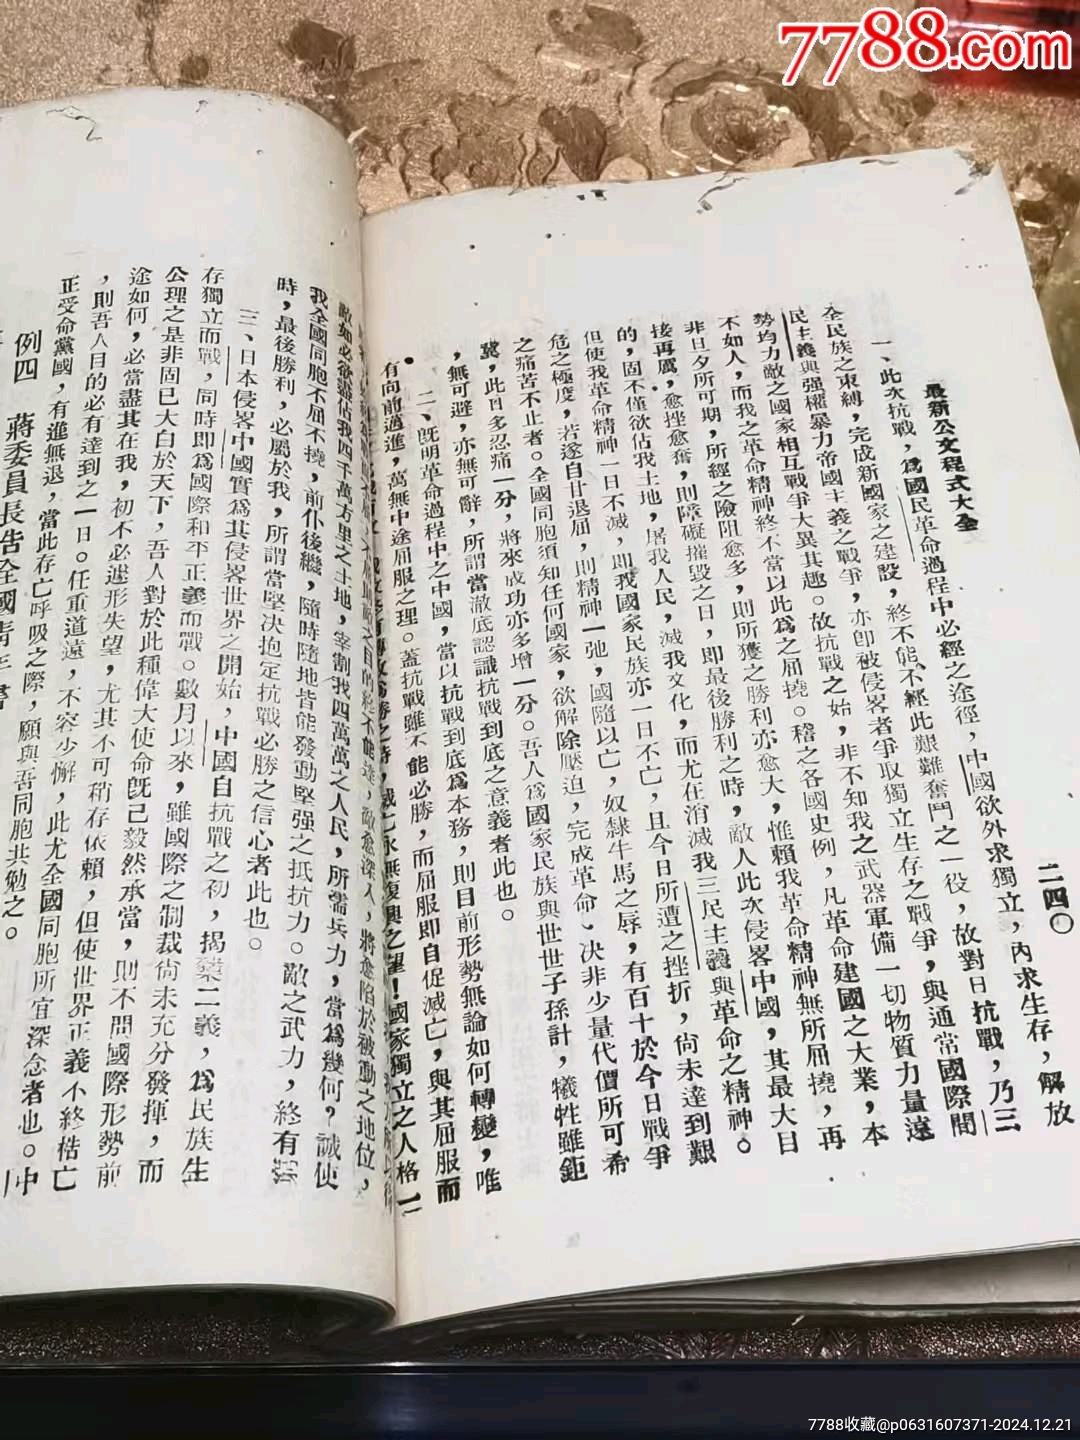 7788.com
最新公文程式大全
二四〇
一、此次抗戰，爲國民革命過程中必經之途徑，中國欲外求獨立，內求生存，解放
全民族之束縛，完成新國家之建設，終不能不經此艱難奮鬥之一役，故對日抗戰，乃三
民主義與强權暴力帝國主義之戰爭，亦卽被侵畧者爭取獨立生存之戰爭，與通常國際間
勢均力敵之國家相互戰爭大異其趣。故抗戰之始，非不知我之武器軍備一切物質力量遠
不如人，而我之革命精神終不當以此爲之屈撓。稽之各國史例，凡革命建國之大業，本
非旦夕所可期，所經之險阻愈多，則所獲之勝利亦愈大，惟賴我革命精神無所屈撓，再
接再厲，愈挫愈奮，則障礙摧毀之日，卽最後勝利之時，敵人此次侵畧中國，其最大目
的，固不僅欲佔我土地，屠我人民，滅我文化，而尤在消滅我三民主義與革命之精神。
但使我革命精神一日不滅，卽我國家民族亦一日不亡，且今日所遭之挫折，尙未達到艱
危之極度，若遂自甘退屈，則精神一弛，國隨以亡，奴隸牛馬之辱，有百十於今日戰爭
之痛苦不止者。全國同胞須知任何國家，欲解除壓迫，完成革命，決非少量代價所可希
冀，此日多忍痛一分，將來成功亦多增一分。吾人爲國家民族與世世子孫計，犧牲雖鉅
，無可避，亦無可辭，所謂當澈底認識抗戰到底之意義者此也。
二、旣明革命過程中之中國，當以抗戰到底爲本務，則目前形勢無論如何轉變，唯
有向前邁進，萬無中途屈服之理。蓋抗戰雖不能必勝，而屈服卽自促滅亡，與其屈服而
敗亡永無復興之望！國家獨立之人格一
敵如必欲盡佔我四千萬方里之土地，宰割我四萬萬之人民，所需兵力，當爲幾何？誠使
我全國同胞不屈不撓，前仆後繼，隨時隨地皆能發動堅强之抵抗力。敵之武力，終有
時，最後勝利，必屬於我，所謂當堅決抱定抗戰必勝之信心者此也。
三、日本侵畧中國實爲其侵畧世界之開始，中國自抗戰之初，揭櫫二義，爲民族生
存獨立而戰，同時卽爲國際和平正義而戰。數月以來，雖國際之制裁尙未充分發揮，而
公理之是非固已大白於天下，吾人對於此種偉大使命旣已毅然承當，則不問國際形勢前
途如何，必當盡其在我，初不必遽形失望，尤其不可稍存依賴，但使世界正義不終梏亡
，則吾人目的必有達到之一日。任重道遠，不容少懈，此尤全國同胞所宜深念者也。中
正受命黨國，有進無退，當此存亡呼吸之際，願與吾同胞共勉之。
例四　蔣委員長告全國靑年書
7788收藏@p0631607371-2024.12.21